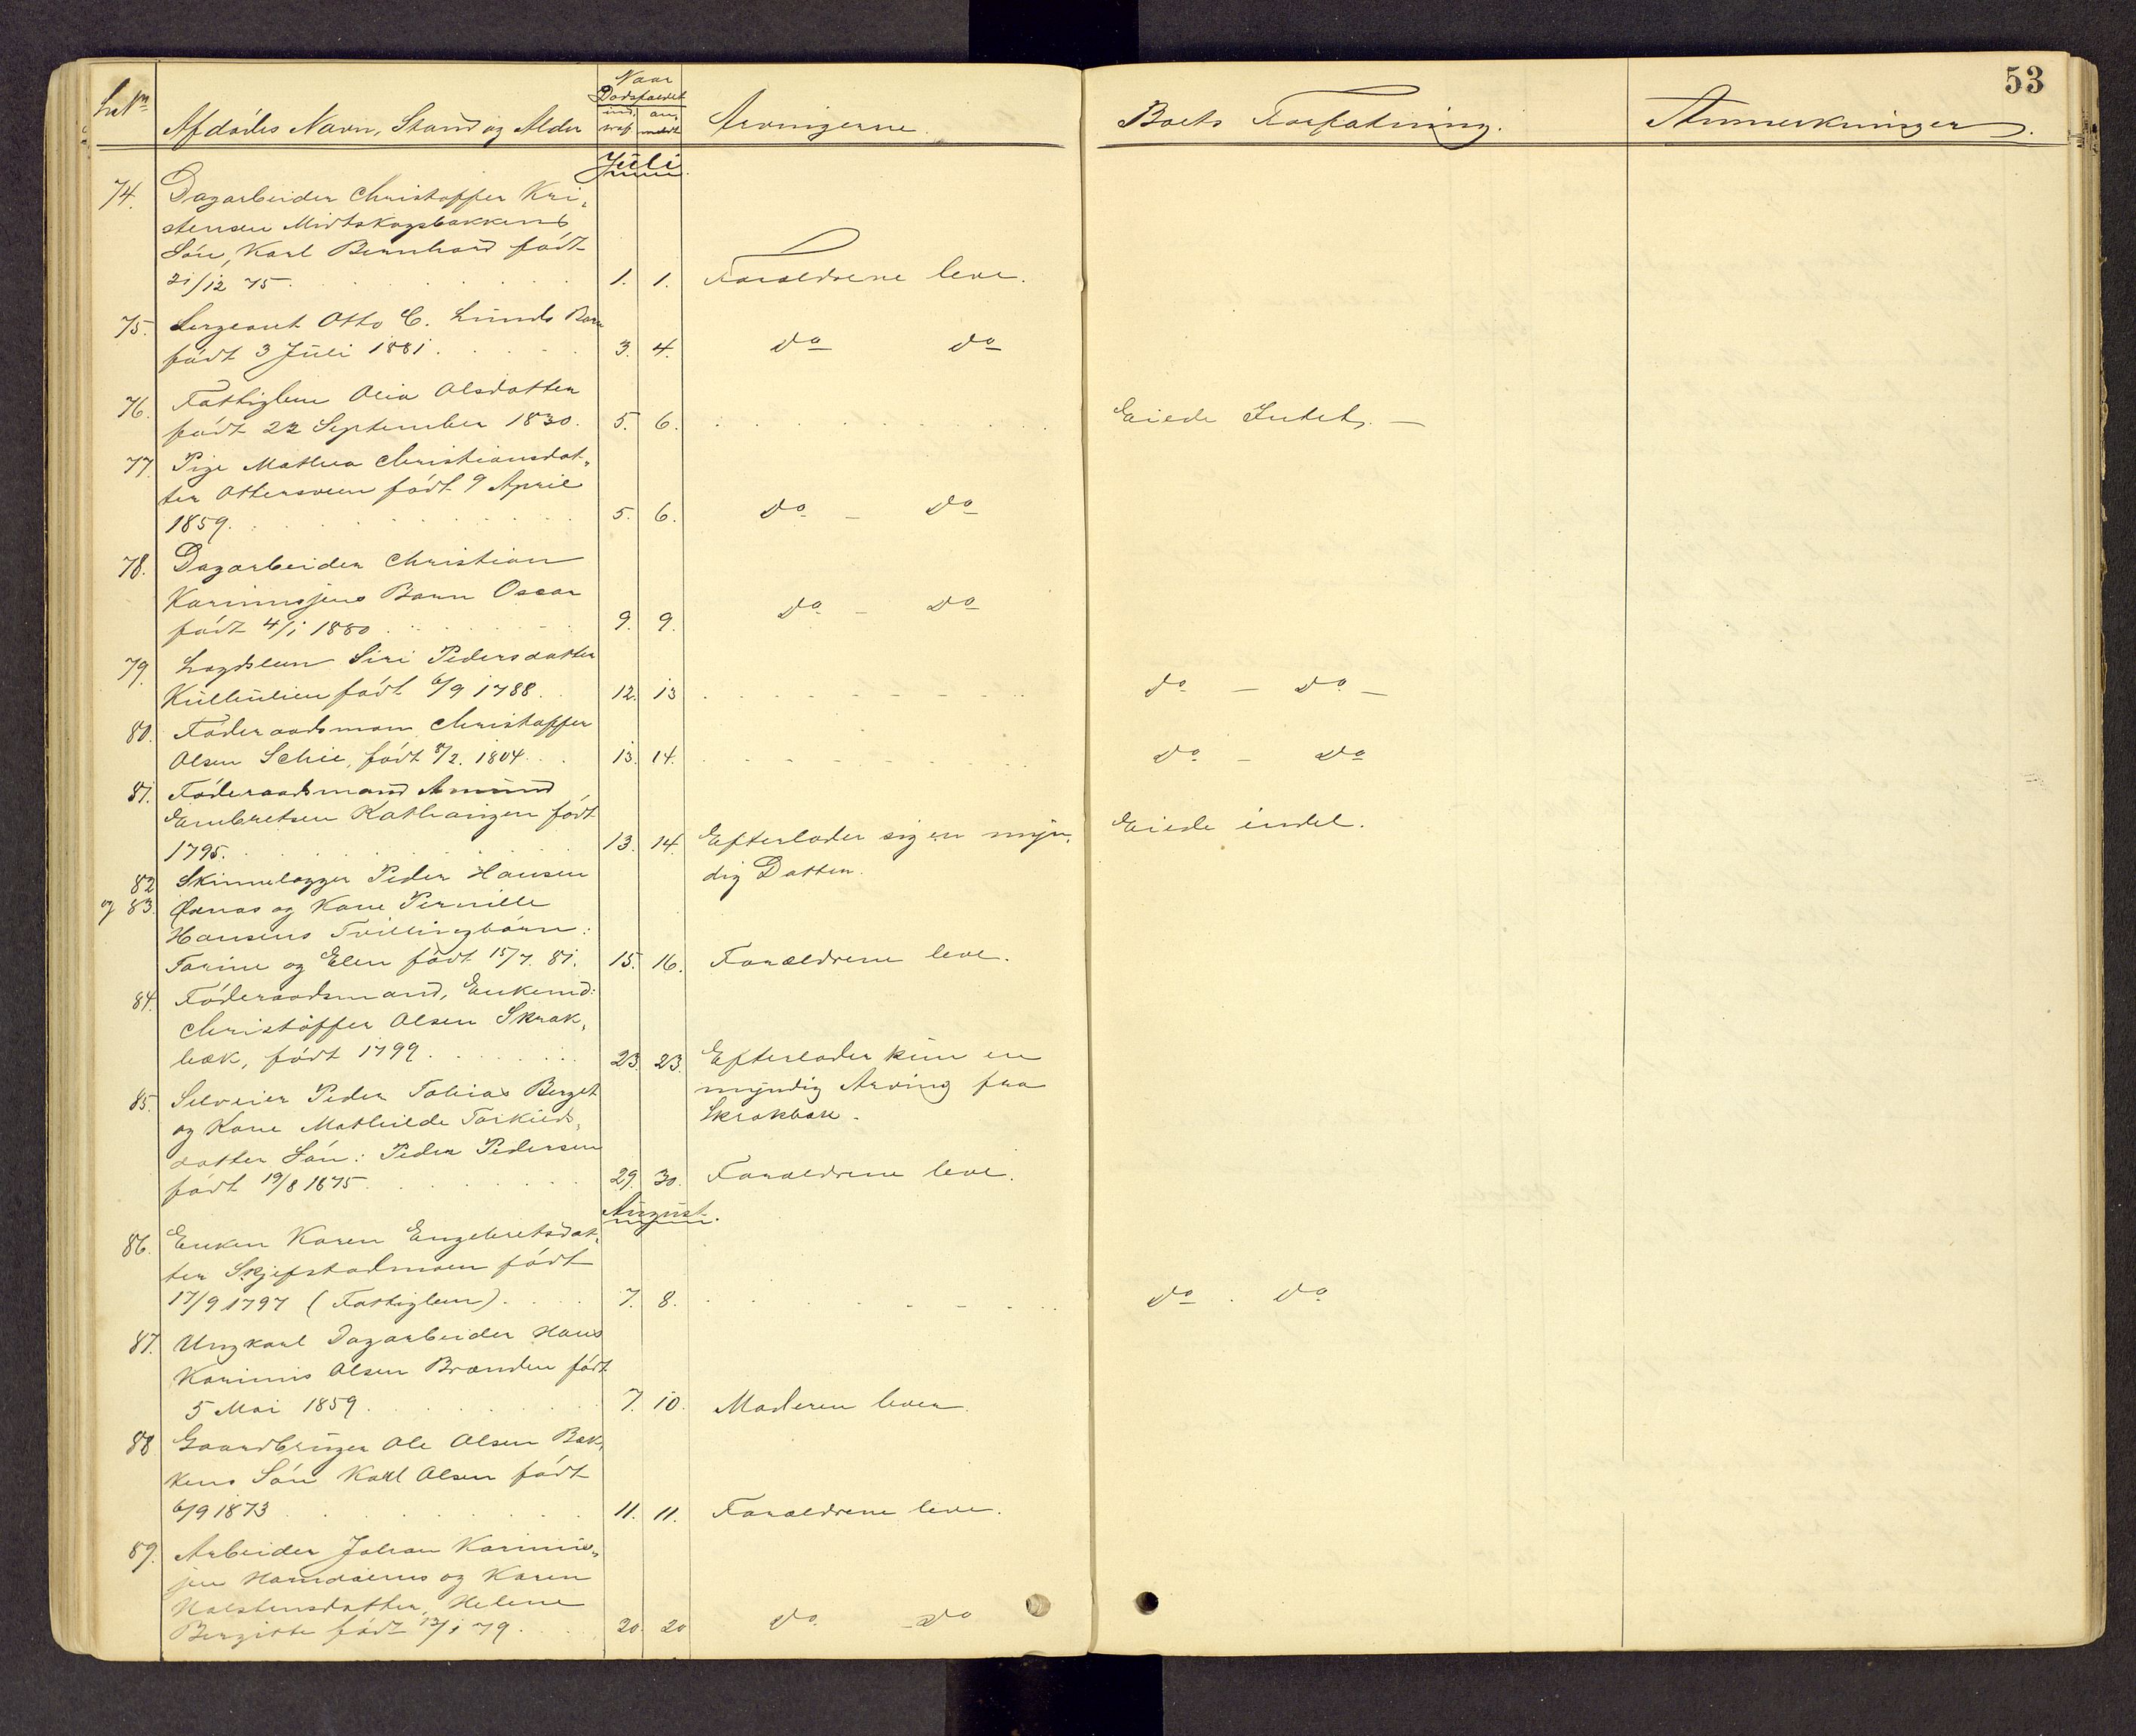 53
Naar
Dødsfaldet
Afdødes Navn, Stand og Alder
ind, an,
traf meldt
Arvingerne
Boets Forfatning.
Anmerkninger.
Juli
74. Dagarbeider Christoffer Kri,
stensen Midtskogsbakkens
Søn, Karl Bernhard født
21/12 75. 1. 1. Forældrene leve.
75. Sergeant Otto C. Lunds Barn
født 3 Juli 1881. 3. 4. do do
76. Fattiglem Olia Olsdatter
født 22 September 1830. 5. 6. Eiede Intet. —
77. Pige Mathea Christiansdat,
ter Ottersveen født 9 April
1859. 5. 6. do - do
78. Dagarbeider Christian
Karinusjens Barn Oscar
født 4/1 1880 9. 9. do - do
79. Lægdslem Siri Pedersdatter
født 6/9 1788. 12. 13 do — do —
80. Føderaadsman Christoffer
Olsen Schie, født 8/2. 1804. 13. 14. do - do
81. Føderaadsmand Amund
Embretsen født
1795. 13. 14. Efterlader sig en myn, Eiede indel.
dig Datter.
82 Skinnelægger Peder Hansen
og 83. og Kone Pernille
Hansens Tvillingbørn:
Torine og Elen født 15/7. 81. 15. 16. Forældrene leve.
84. Føderaadsmand, Enkemd:
Christoffer Olsen Skrak,
bæk, født 1799. 23. 23. Efterlader kun en
myndig Arving paa
Skrakbæk.
85. Selveier Peder Tobias Berget
og Kone Mathilde Torkilds,
datter Søn: Peder Pedersen
født 19/8 1875 29. 30. Forældrene leve.
August.
86. Enken Karen Engebretsdat,
ter Skjefstadmoen født
17/9 1797 (Fattiglem). 7. 8. do . do
87. Ungkarl Dagarbeider Hans
Karinus Olsen Brænden født
5 Mai 1859. 7. 10. Moderen lever.
88 Gaardbruger Ole Olsen Bak,
kens Søn Karl Olsen født
6/9 1873 11. 11. Forældrene leve.
89. Arbeider Johan Karinus,
jen og Karen
Halstensdatter, Helene
Bergitte født 13/1 79. 20. 20 do - do